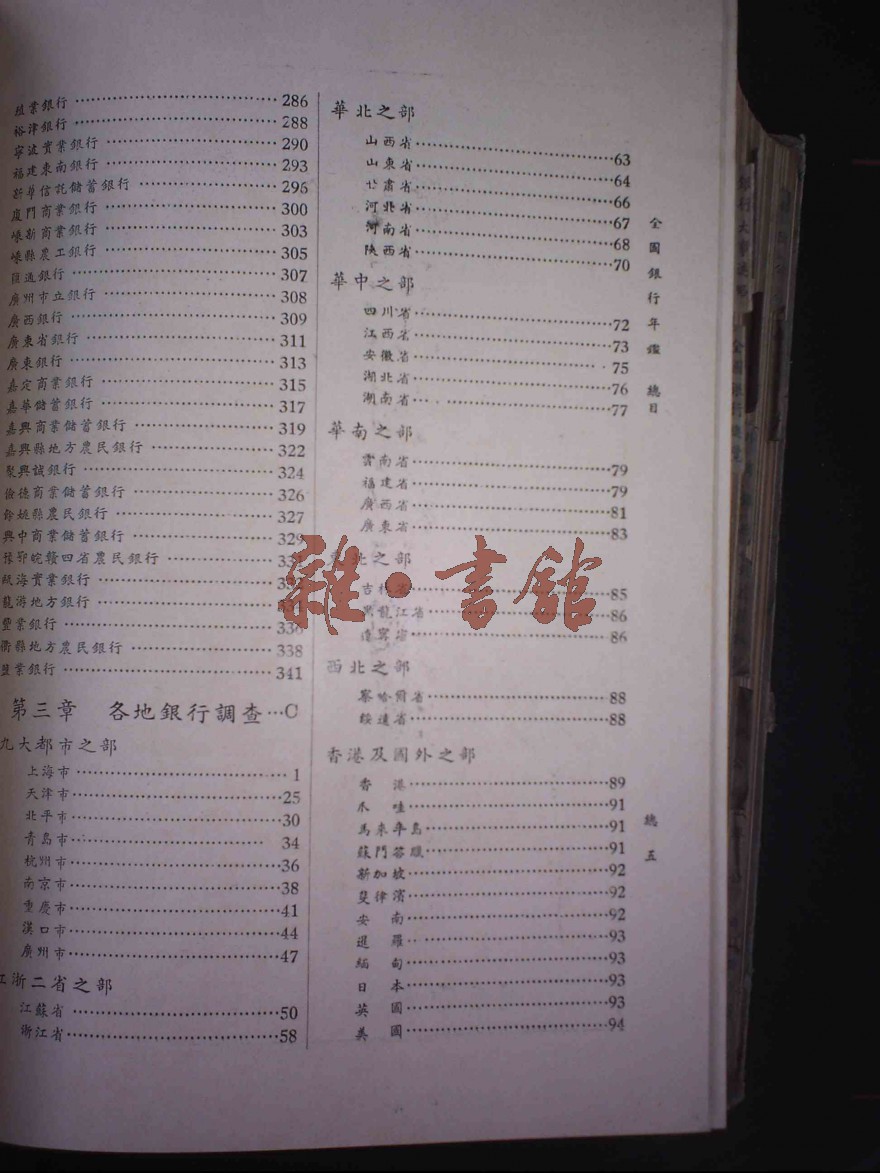 殖業銀行 286
裕津銀行 288
寧波實業銀行 290
福建東南銀行 293
新華信託儲蓄銀行 296
廈門商業銀行 300
嵊新商業銀行 303
嵊縣農工銀行 305
匯通銀行 307
廣州市立銀行 308
廣西銀行 309
廣東省銀行 311
廣東銀行 313
嘉定商業銀行 315
嘉華儲蓄銀行 317
嘉興商業儲蓄銀行 319
嘉興縣地方農民銀行 322
聚興誠銀行 324
儉德商業儲蓄銀行 326
餘姚縣農民銀行 327
興中商業儲蓄銀行 329
豫鄂皖贛四省農民銀行
甌海實業銀行
龍游地方銀行
豐業銀行 336
衢縣地方農民銀行 338
墾業銀行 341
第三章 各地銀行調查…C
九大都市之部
上海市 1
天津市 25
北平市 30
青島市 34
杭州市 36
南京市 38
重慶市 41
漢口市 44
廣州市 47
江浙二省之部
江蘇省 50
浙江省 58
華北之部
山西省 63
山東省 64
甘肅省 66
河北省 67
河南省 68
陝西省 70
華中之部
四川省 72
江西省 73
安徽省 75
湖北省 76
湖南省 77
華南之部
雲南省 79
福建省 79
廣西省 81
廣東省 83
北之部
吉林省 85
黑龍江省 86
遼寧省 86
西北之部
察哈爾省 88
綏遠省 88
香港及國外之部
香港 89
爪哇 91
馬來半島 91
蘇門答臘 91
新加坡 92
斐律濱 92
安南 92
暹羅 93
緬甸 93
日本 93
英國 93
美國 94
全國銀行年鑑 總目
總五
雜·書館